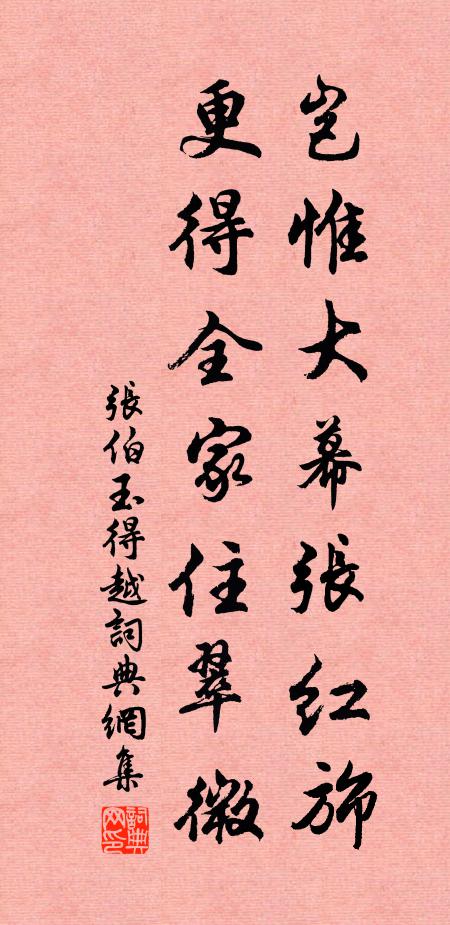 岂惟大幕張红旆
更得全家住翠微
張伯玉得越詞典網集
詞典网印